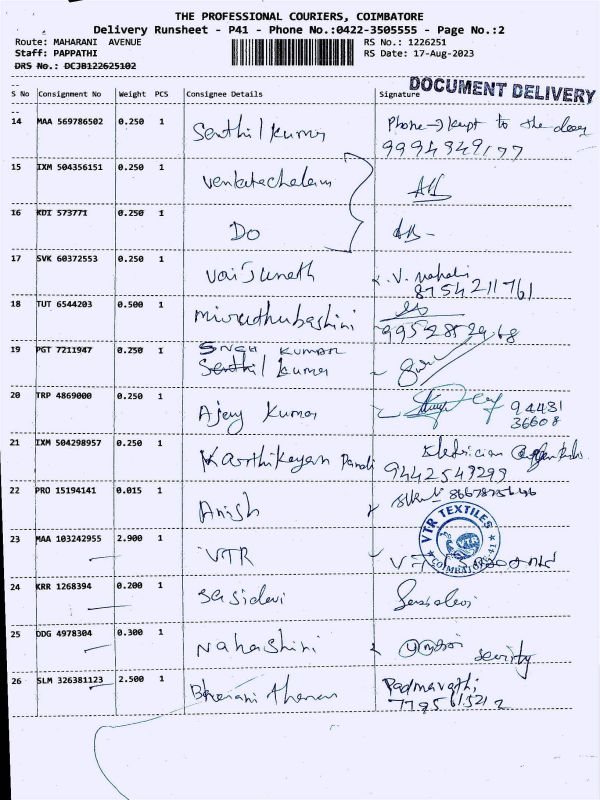 THE PROFESSIONAL COURIERS, COIMBATORE
Delivery Runsheet - P41 - Phone No.:0422-3505555 - Page No.:2
Route: MAHARANI AVENUE RS No.: 1226251
Staff: PAPPATHI RS Date: 17-Aug-2023
DRS No.: DCJB122625102
DOCUMENT DELIVERY
S No Consignment No Weight PCS Consignee Details Signature
14 MAA 569786502 0.250 1 Senthil kumar Phone → kept to the door
9994949177
15 IXM 504356151 0.250 1 Venkatachalam
16 KDI 573771 0.250 1 Do
17 SVK 60372553 0.250 1 Vaisunath V.
8754211761
18 TUT 6544203 0.500 1 Miruthubashini
9952852968
19 PGT 7211947 0.250 1 SNGH KUMAR
Senthil kumar
20 TRP 4869000 0.250 1 Ajay Kumar 94431
36608
21 IXM 504298957 0.250 1 Karthikeyan Pandi Eledrician
9442549299
22 PRO 15194141 0.015 1 Anish
23 MAA 103242955 2.900 1 VTR
VTR TEXTILES
COIMBATORE-41
24 KRR 1268394 0.200 1 Sasidevi Sasidevi
25 DDG 4978304 0.300 1 Naharshini
security
26 SLM 326381123 2.500 1 Padmavathi
7795615212